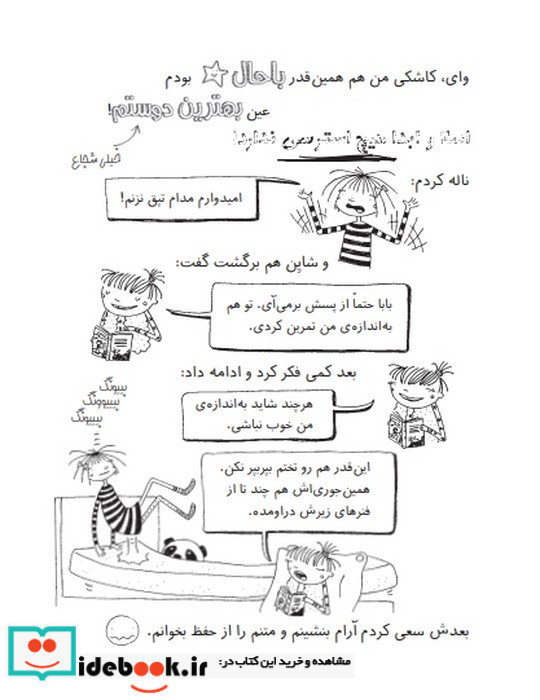 وای، کاشکی من هم همین‌قدر باحال بودم
عین بهترین دوستم!
خیلی شجاع
ناله کردم:
امیدوارم مدام تپق نزنم!
و شاین هم برگشت گفت:
بابا حتماً از پسش برمی‌آی. تو هم
به‌اندازه‌ی من تمرین کردی.
بعد کمی فکر کرد و ادامه داد:
هرچند شاید به‌اندازه‌ی
من خوب نباشی.
بیبونگ
بیبوونگ
بیبونگ
این‌قدر هم رو تختم بپربپر نکن.
همین‌جوری‌اش هم چند تا از
فنرهای زیرش دراومده.
بعدش سعی کردم آرام بنشینم و متنم را از حفظ بخوانم.
مشاهده و خرید این کتاب در:
idebook.ir